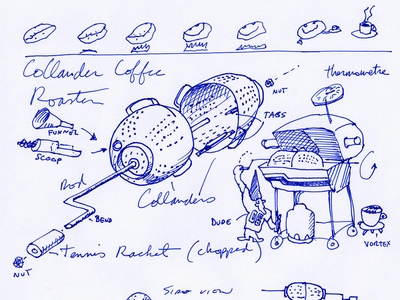 Collander Coffee
Roaster
thermometre
NUT
TABS
FUNNEL
SCOOP
Rod
Collanders
BEND
DUDE
VORTEX
Tennis Racket (chopped)
NUT
SIDE VIEW